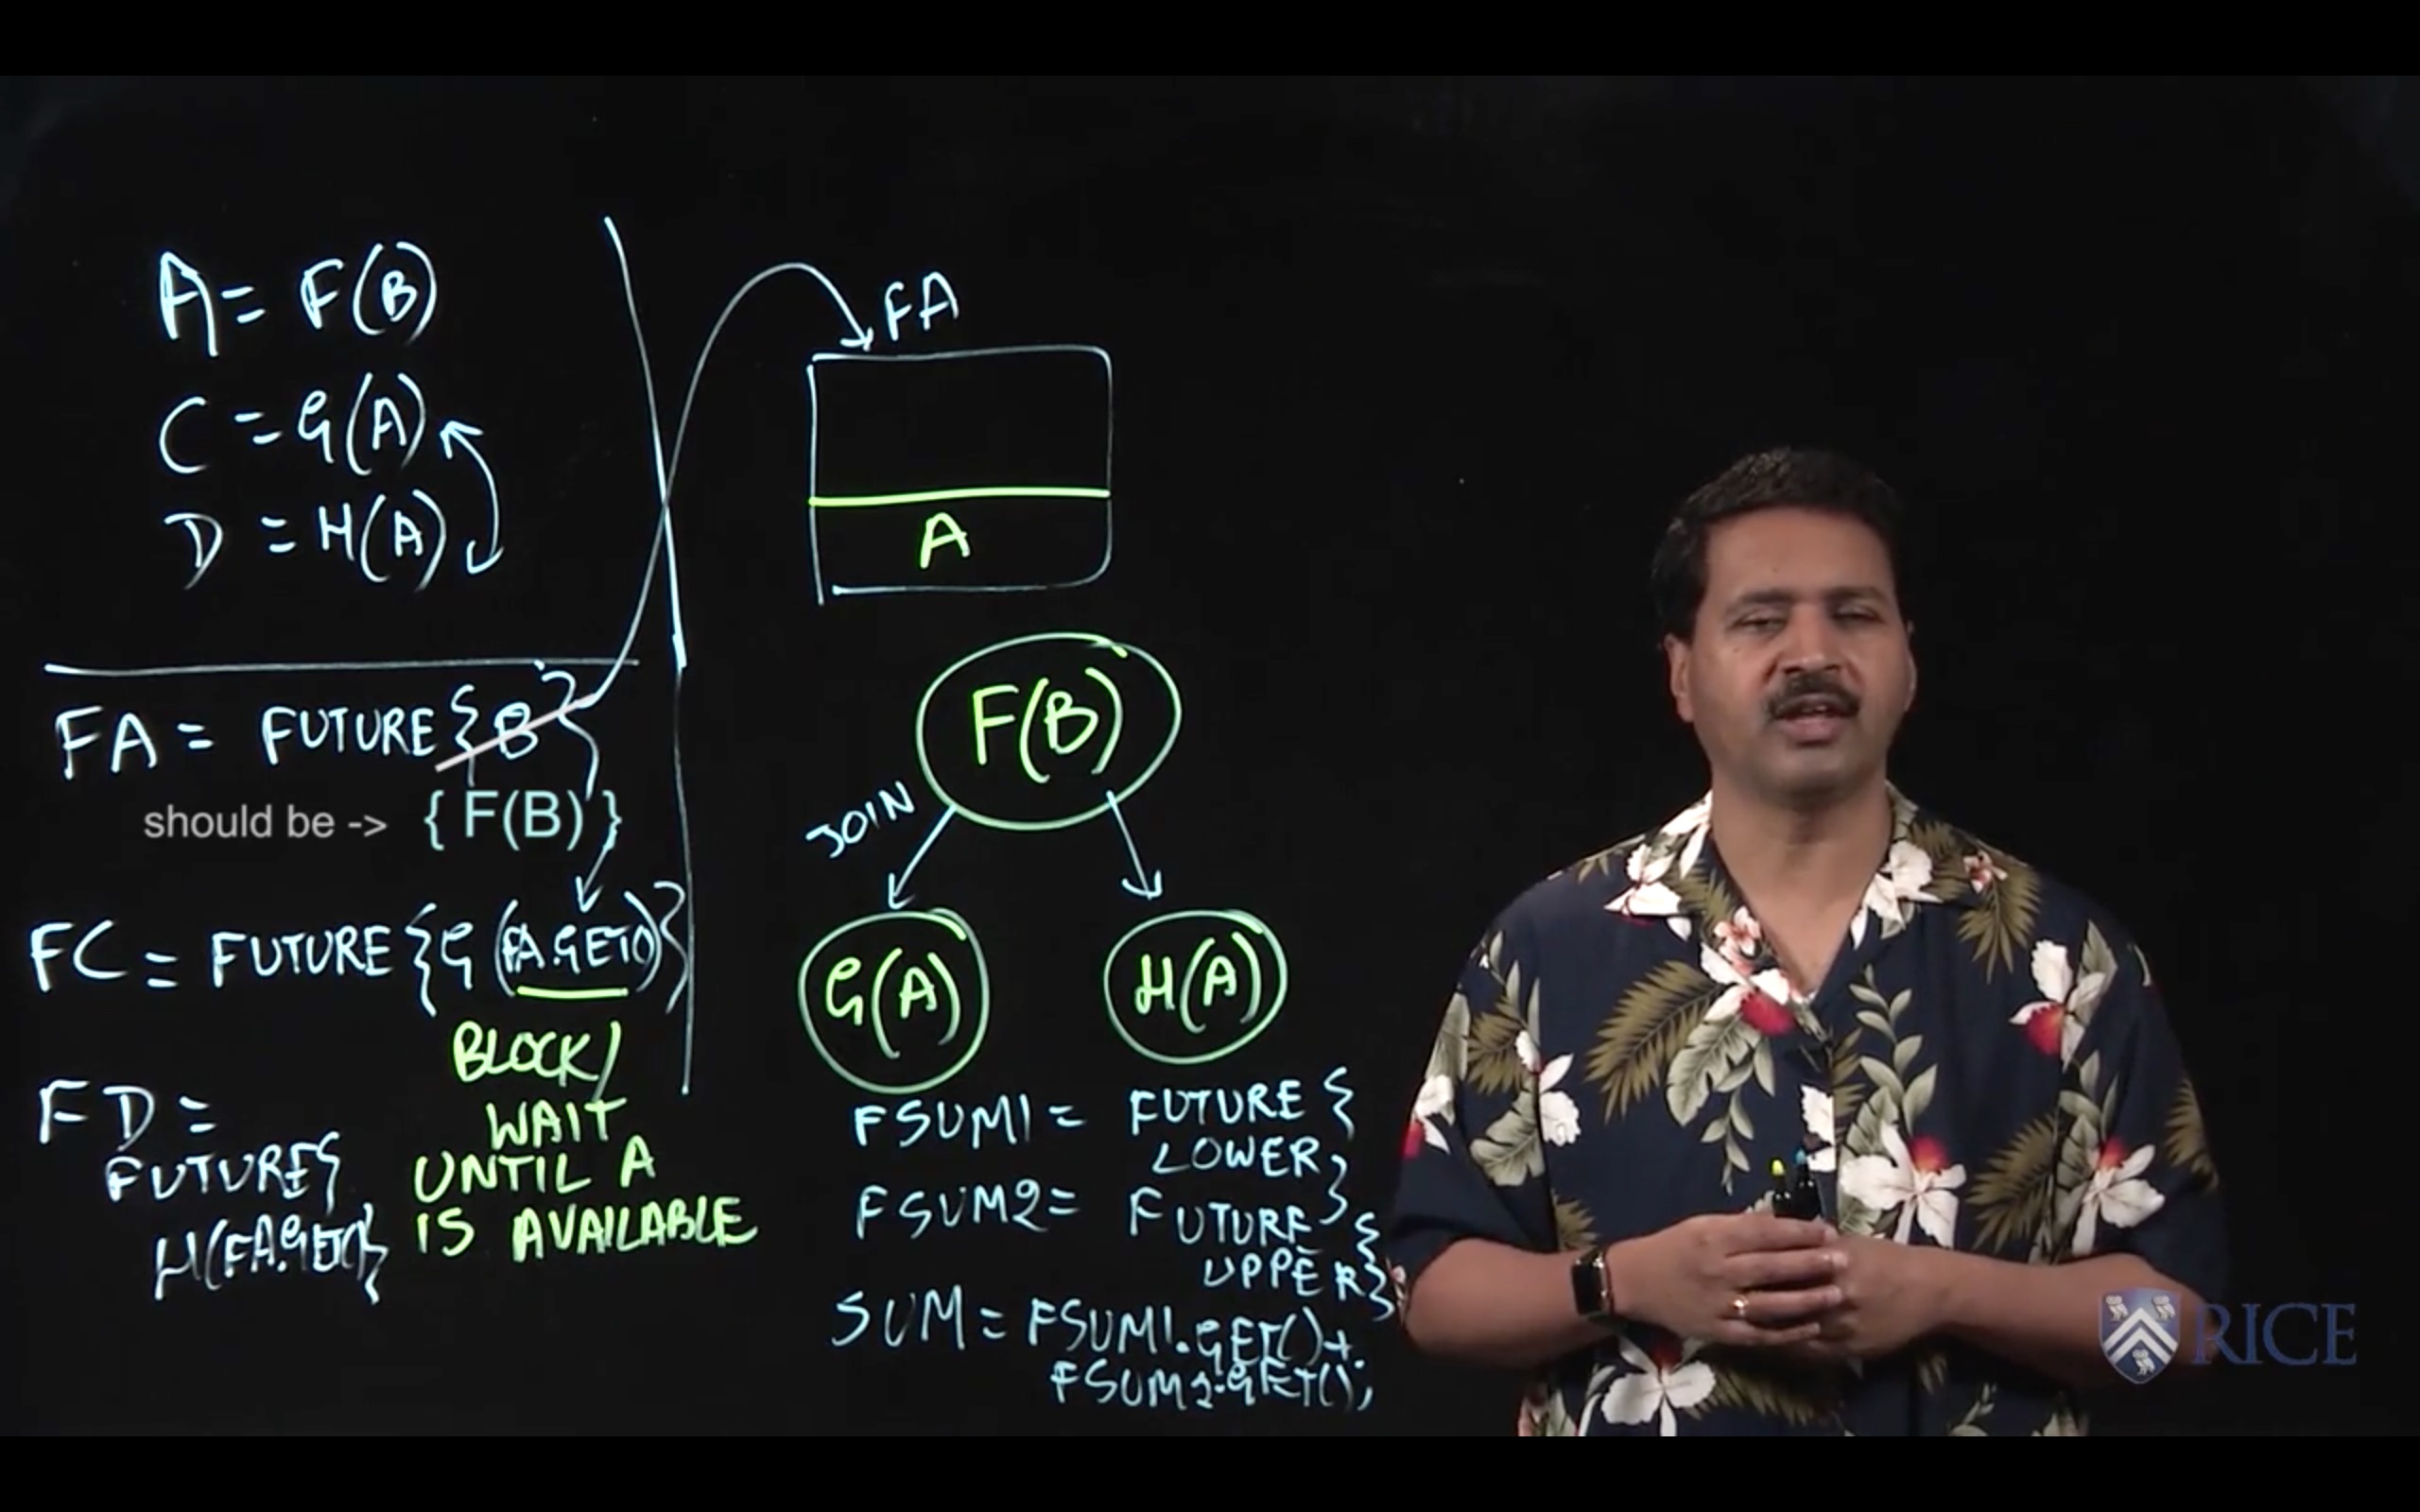 A = F(B)
C = G(A)
D = H(A)
FA = FUTURE { B }
should be -> { F(B) }
FC = FUTURE { G (FA.GET()) }
BLOCK/
WAIT
UNTIL A
IS AVAILABLE
FD =
FUTURE {
H(FA.GET()}
FA
A
F(B)
JOIN
G(A)
H(A)
FSUM1 = FUTURE {
LOWER}
FSUM2 = FUTURE {
UPPER}
SUM = FSUM1.GET() +
FSUM2.GET();
RICE